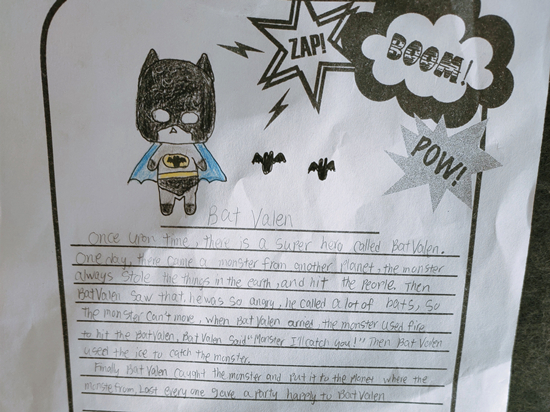 ZAP!
BOOM!
POW!
Bat Valen
Once upon time, there is a super hero called BatValen.
One day, there came a monster from another Planet, the monster
always stole the things in the earth, and hit the People. Then
BatValen saw that, he was so angry, he called a lot of bats, so
The monster can't move, when Bat Valen arrived, the monster used fire
to hit the BatValen, BatValen said "Monster I'll catch you!" Then Bat Valen
used the ice to catch the monster.
Finally Bat Valen caught the monster and Put it to the planet where the
monster from, Last every one gave a party happily to BatValen